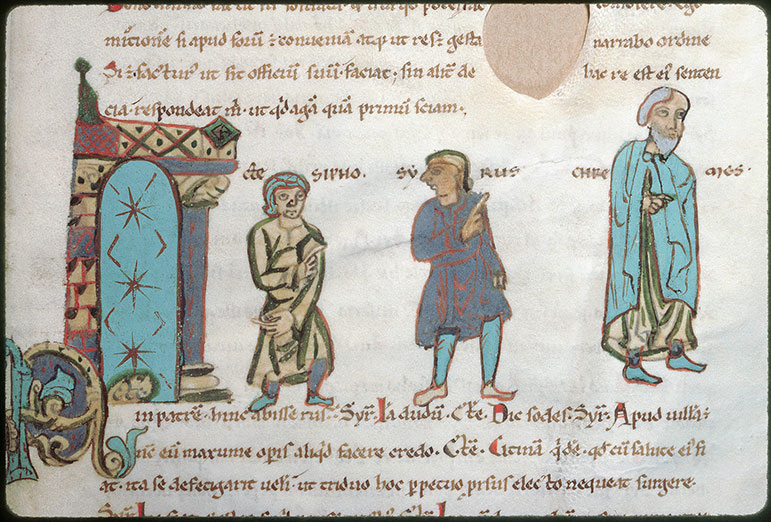 mitione si apud forũ ⁊ conveniã atq; ut res ÷ gesta narrabo ordine
Si ÷ factur' ut sit officiũ suũ faciat, sin alit' de hac re est ei' senten
cia · respondeat m̃ · ut q̃d agã quã primũ sciam ·,
CTE SIPHO · SY RUS CHRE MES ·
in patrẽ · hinc abisse rus · Syr̃ · Ia dudũ · Cte · Dic sodes · Syr̃ · Apud villã ÷
nc̃ eũ maxume operis aliq̃d facere credo · Cte · Utinã q̃dẽ · q̃d cũ salute ei' fi
at · ita se defetigarit veli · ut triduo hoc perpetuo prsus e lecto nequeat surgere ·